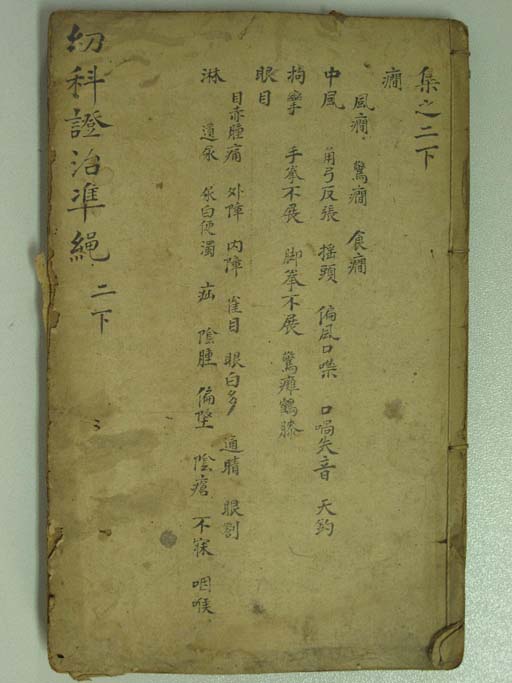 集之二下
癇
風癇 驚癇 食癇
中風 角弓反張 搖頭 偏風口噤 口喎失音 天釣
拘攣 手拳不展 脚拳不展 驚癱鶴膝
眼目
目赤腫痛 外障 内障 雀目 眼白多 通睛 眼劄
淋 遺尿 尿白便濁 疝 陰腫 偏墜 陰瘡 不寐 咽喉
幼科證治準繩 二下